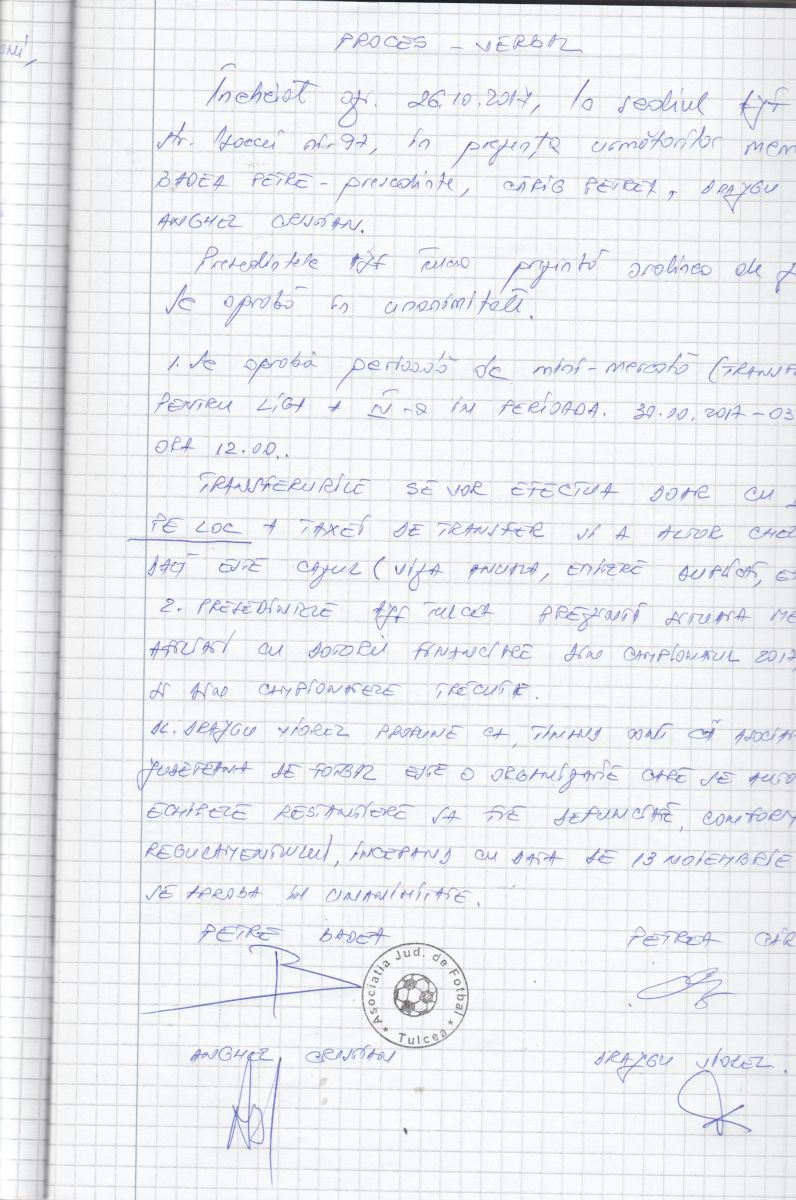 PROCES - VERBAL
Încheiat azi. 26.10.2017, la sediul AJF
str. Isaccei nr. 97, în prezența următorilor mem
BADEA PETRE - președinte, CÂRIG PETREA, DRAJGU
ANGHEL CRISTIAN.
Președintele AJF Tulcea prezintă ordinea de z
Se aprobă în unanimitate.
1. Se aprobă perioadă de mini-mercato (TRANSFE
PENTRU LIGA A IV-a IN PERIOADA. 30.10.2017 - 03
ORA 12.00..
TRANSFERURILE SE VOR EFECTUA DOAR CU
PE LOC A TAXEI DE TRANSFER SI A ALTOR CHEL
DACĂ ESTE CAZUL (VIZA ANUALA, EMITERE DUPLICAT, E
2. PRESEDINTELE AJF TULCEA PREZINTĂ SITUATIA ME
AFILIATI CU DATORII FINANCIARE DIN CAMPIONATUL 2017
SI DIN CAMPIONATELE TRECUTE.
DL. DRAJGU VIOREL PROPUNE CA, TINAND CONT CĂ ASOCIAT
JUDETEANA DE FOTBAL ESTE O ORGANIZATIE CARE SE AUTO
ECHIPELE RESTANTIERE SA FIE DEPUNCTATE, CONFORM
REGULAMENTULUI, INCEPAND CU DATA DE 13 NOIEMBRIE
SE APROBA IN UNANIMITATE.
PETRE BADEA PETREA CÂR
Asociatia Jud. de Fotbal
* Tulcea *
ANGHEL CRISTIAN DRAJGU VIOREL.